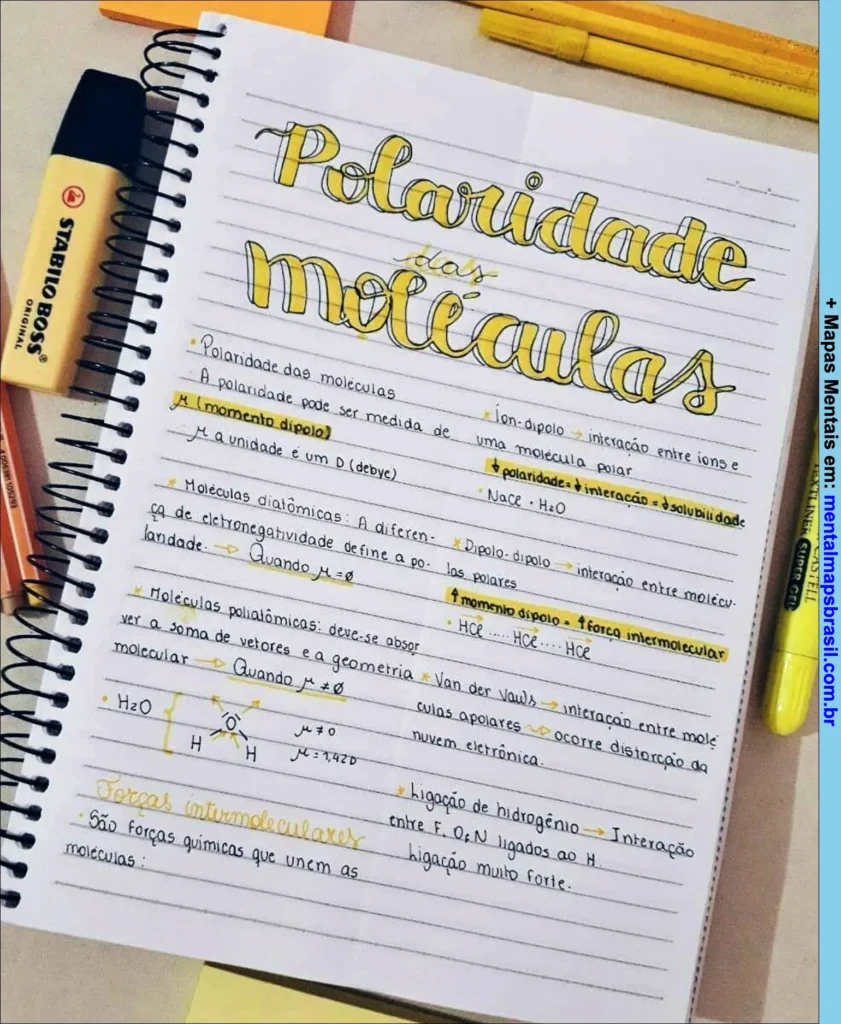 Polaridade
das
moléculas
• Polaridade das moléculas
A polaridade pode ser medida de
μ (momento dipolo)
μ a unidade é um D (debye)
* Moléculas diatômicas: A diferen-
ça de eletronegatividade define a po-
laridade. → Quando μ = ø
* Moléculas poliatômicas: deve-se absor
ver a soma de vetores e a geometria
molecular → Quando μ ≠ ø
• H2O
O
H H
μ ≠ 0
μ = 1,42D
Forças intermoleculares
• São forças químicas que unem as
moléculas:
* Íon-dipolo → interação entre íons e
uma molécula polar
↓ polaridade = ↓ interação = ↓ solubilidade
• NaCl • H2O
* Dipolo-dipolo → interação entre molécu-
las polares
↑ momento dipolo = ↑ força intermolecular
• HCl ..... HCl .... HCl
* Van der Vaals → interação entre molé
culas apolares → ocorre distorção da
nuvem eletrônica.
* Ligação de hidrogênio → Interação
entre F, O, N ligados ao H.
Ligação muito forte.
STABILO BOSS
ORIGINAL
CASTELL
SUPER GEL
+ Mapas Mentais em: mentalmapsbrasil.com.br